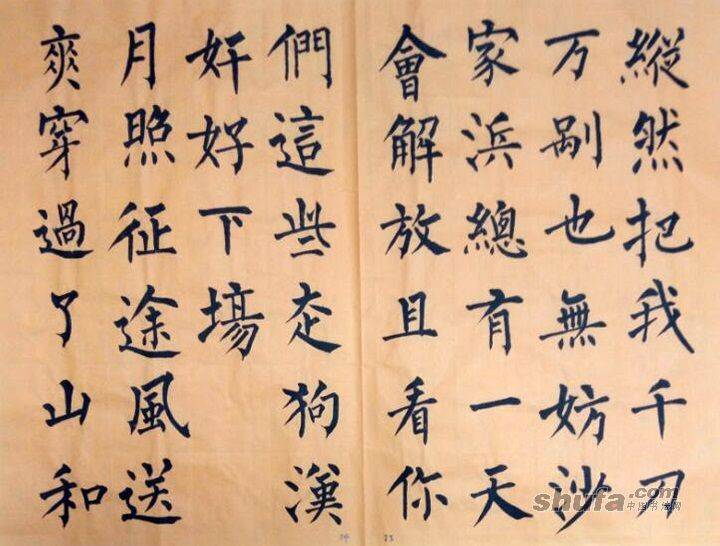 縱然把我千刀
万剮也無妨沙
家浜總有一天
會解放且看你
們這些走狗漢
奸好下場
月照征途風送
爽穿過了山和
shufa.com
中国书法网